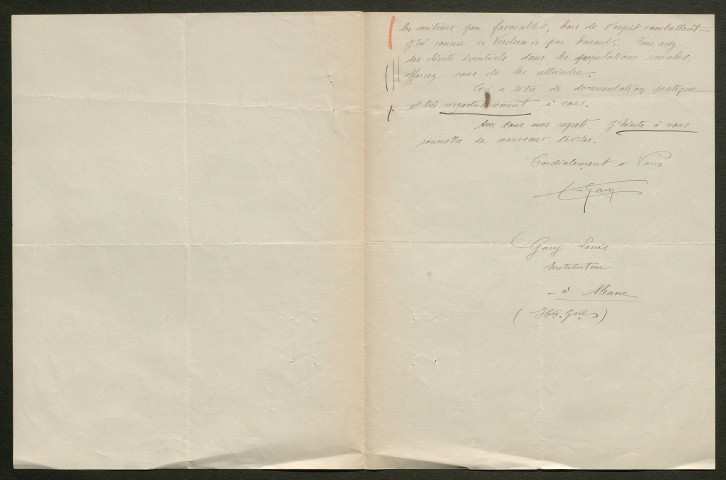 les milieux peu favorables, hors de l'esprit combattant.
J'ai connu ce Verdun-ci par hasard. Vous avez
des clients éventuels dans les populations rurales,
efforcez vous de les atteindre.
Ceci à titre de documentation pratique
et très respectueusement à vous.
Avec tous mes regrets. J'hésite à vous
soumettre de nouveaux textes.
Cordialement à Vous
Gary
Gary Louis
Instituteur
- à Mane
(Hte. Gne)